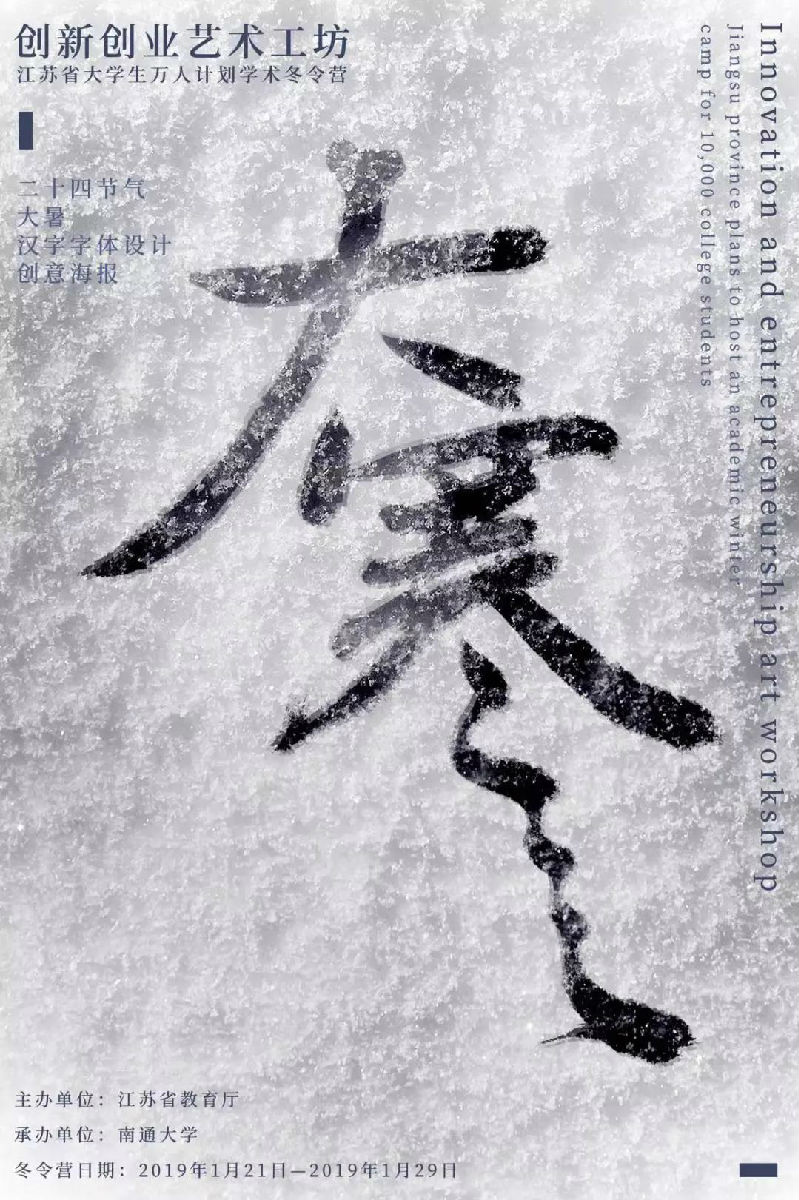 创新创业艺术工坊
江苏省大学生万人计划学术冬令营
二十四节气
大暑
汉字字体设计
创意海报
Innovation and entrepreneurship art workshop
Jiangsu province plans to host an academic winter
camp for 10,000 college students
大寒
主办单位：江苏省教育厅
承办单位：南通大学
冬令营日期：2019年1月21日—2019年1月29日